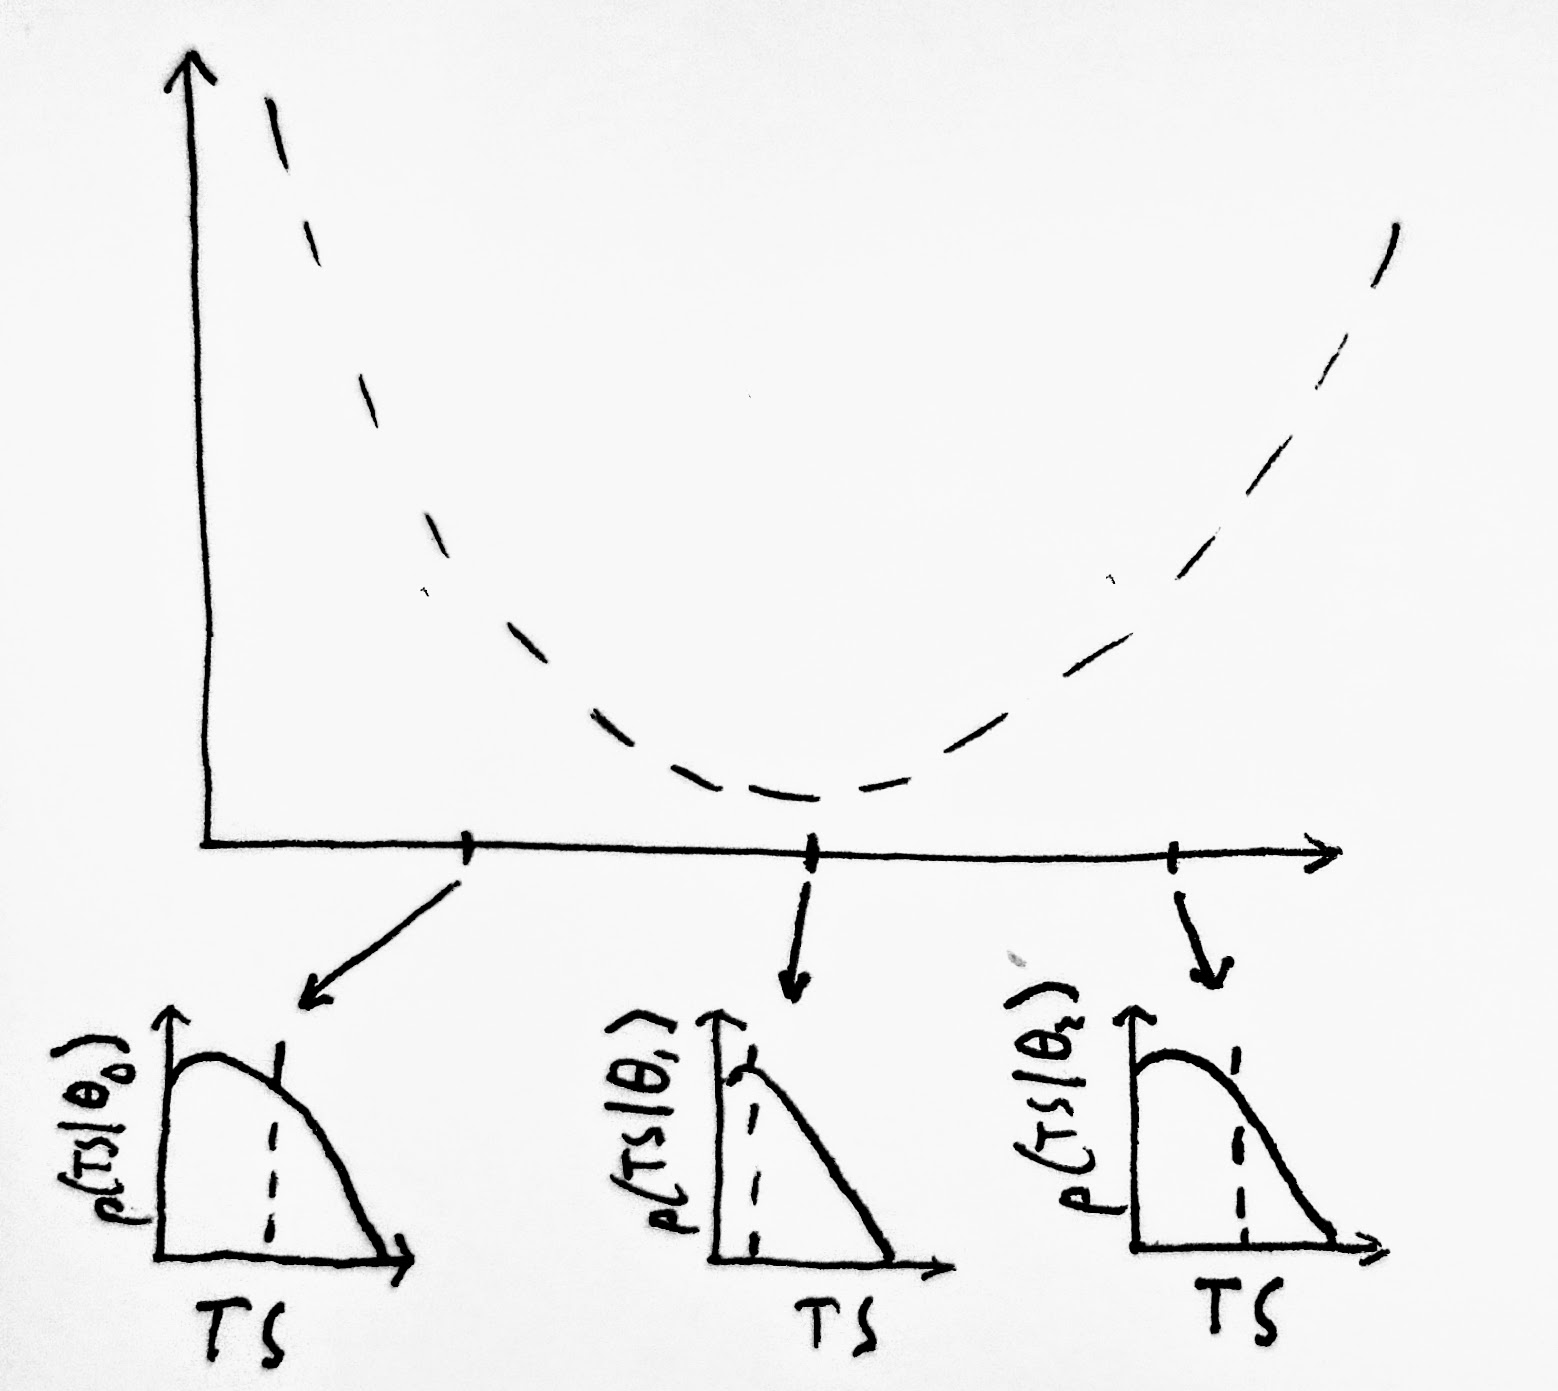 p(TS|θ₀)
TS
p(TS|θ₁)
TS
p(TS|θ₂)
TS